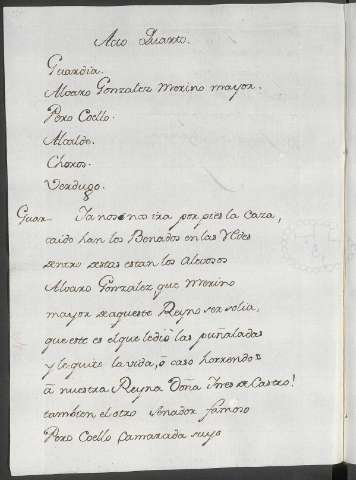 Acto Quarto.
Guardia.
Alvaro Gonzalez Merino mayor.
Pero Coello.
Alcalde.
Choros.
Verdugo.
Guar. Ya no se nos ira por pies la caza,
caido han los Benados en las Redes
dentro destas estan los alevosos
Alvaro Gonzalez que Merino
mayor de aqueste Reyno ser solia,
que este es el que le dió las puñaladas
y le quitó la vida, ó caso horrendo
á nuestra Reyna Doña Ynes de Castro!
tambien el otro Senador famoso
Pero Coello Camarada suyo